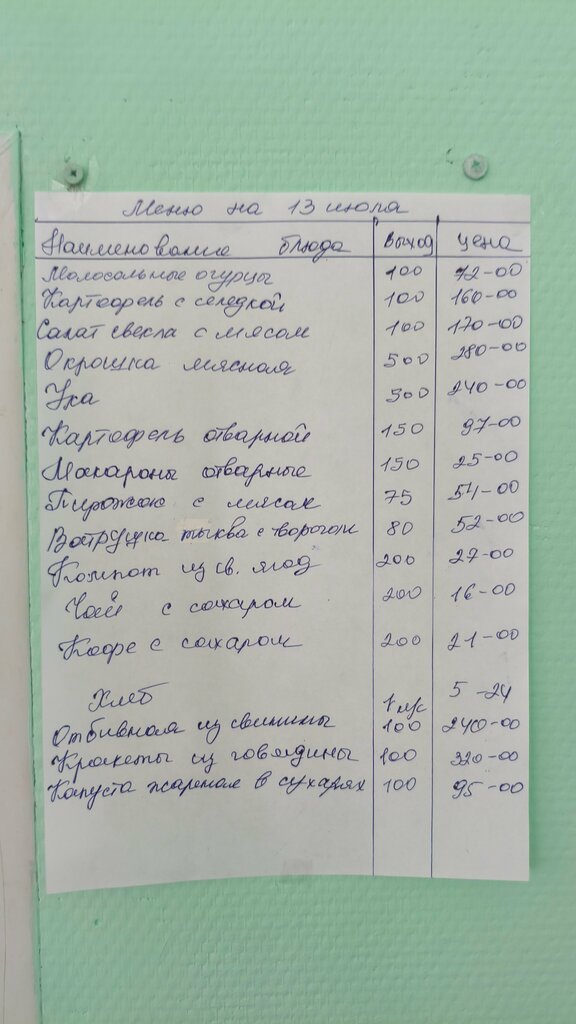 Меню на 13 июля
Наименование блюда выход цена
Малосольные огурцы 100 72-00
Картофель с селедкой 100 160-00
Салат свекла с мясом 100 170-00
Окрошка мясная 500 280-00
Уха 500 240-00
Картофель отварной 150 97-00
Макароны отварные 150 25-00
Пирожок с мясом 75 54-00
Ватрушка тыква с творогом 80 52-00
Компот из св. ягод 200 27-00
Чай с сахаром 200 16-00
Кофе с сахаром 200 21-00
Хлеб 1 шк 5-24
Отбивная из свинины 100 240-00
Крокеты из говядины 100 320-00
Капуста жареная в сухарях 100 95-00